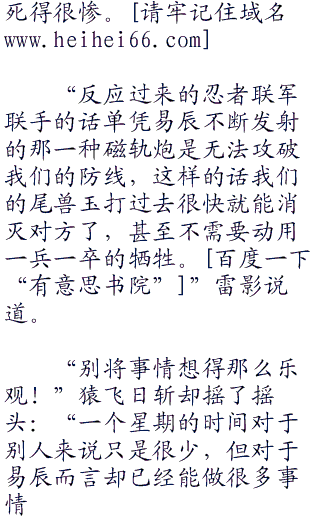 死得很惨。[请牢记住域名
www.heihei66.com]
“反应过来的忍者联军
联手的话单凭易辰不断发射
的那一种磁轨炮是无法攻破
我们的防线，这样的话我们
的尾兽玉打过去很快就能消
灭对方了，甚至不需要动用
一兵一卒的牺牲。[百度一下
“有意思书院”]”雷影说
道。
“别将事情想得那么乐
观！”猿飞日斩却摇了摇
头：“一个星期的时间对于
别人来说只是很少，但对于
易辰而言却已经能做很多事
情